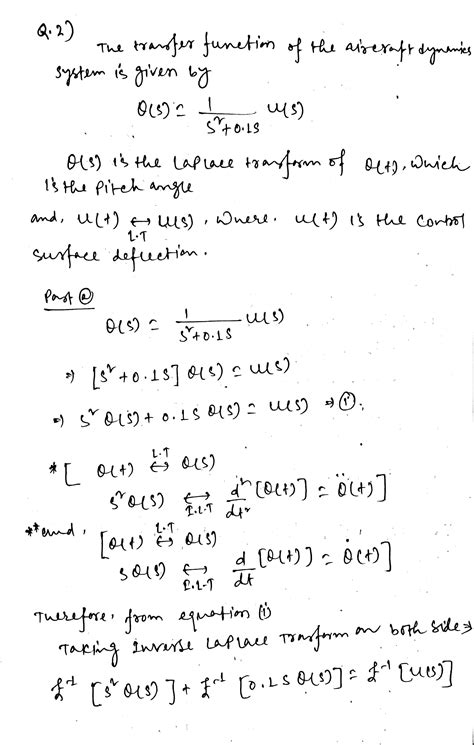 Q.2)
The transfer function of the aircraft dynamics
system is given by
θ(s) = 1/(s²+0.1s) u(s)
θ(s) is the Laplace transform of θ(t), which
is the pitch angle
and, u(t) ↔ u(s), where. u(t) is the control
L.T
surface deflection.
Part (a)
θ(s) = 1/(s²+0.1s) u(s)
⇒ [s²+0.1s] θ(s) = u(s)
⇒ s² θ(s) + 0.1s θ(s) = u(s) ⇒ (i).
* [ θ(t) L.T ↔ θ(s)
s² θ(s) ↔ I.L.T d²/dt² [θ(t)] = θ̈(t) ]
** and, [θ(t) L.T ↔ θ(s)
s θ(s) ↔ I.L.T d/dt [θ(t)] = θ̇(t) ]
Therefore, from equation (i)
Taking inverse Laplace Transform on both side ⇒
£⁻¹ [s² θ(s)] + £⁻¹ [0.1s θ(s)] = £⁻¹ [u(s)]